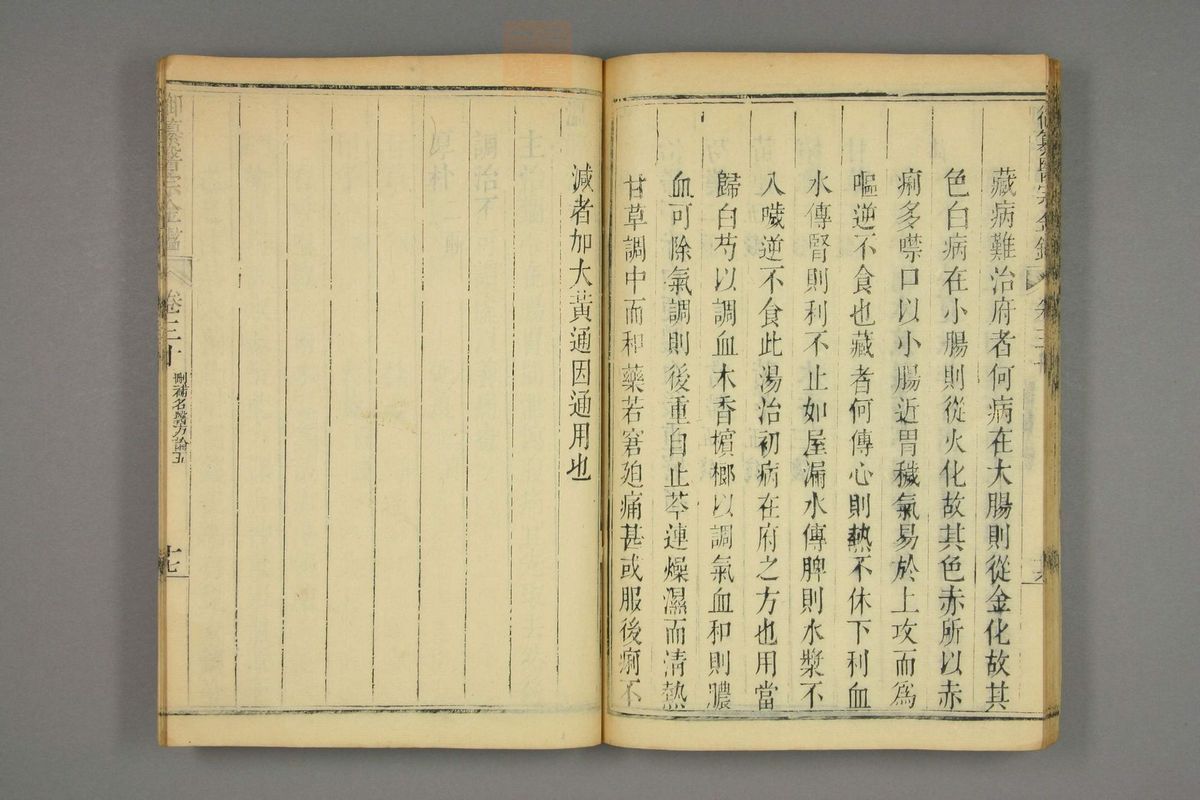 藏病難治府者何病在大腸則從金化故其
色白病在小腸則從火化故其色赤所以赤
痢多噤口以小腸近胃穢氣易於上攻而爲
嘔逆不食也藏者何傳心則熱不休下利血
水傳腎則利不止如屋漏水傳脾則水漿不
入噦逆不食此湯治初病在府之方也用當
歸白芍以調血木香檳榔以調氣血和則膿
血可除氣調則後重自止芩連燥濕而清熱
甘草調中而和藥若窘廹痛甚或服後痢不
減者加大黃通因通用也
御纂醫宗金鑑
卷三十
刪補名醫方論五
十七